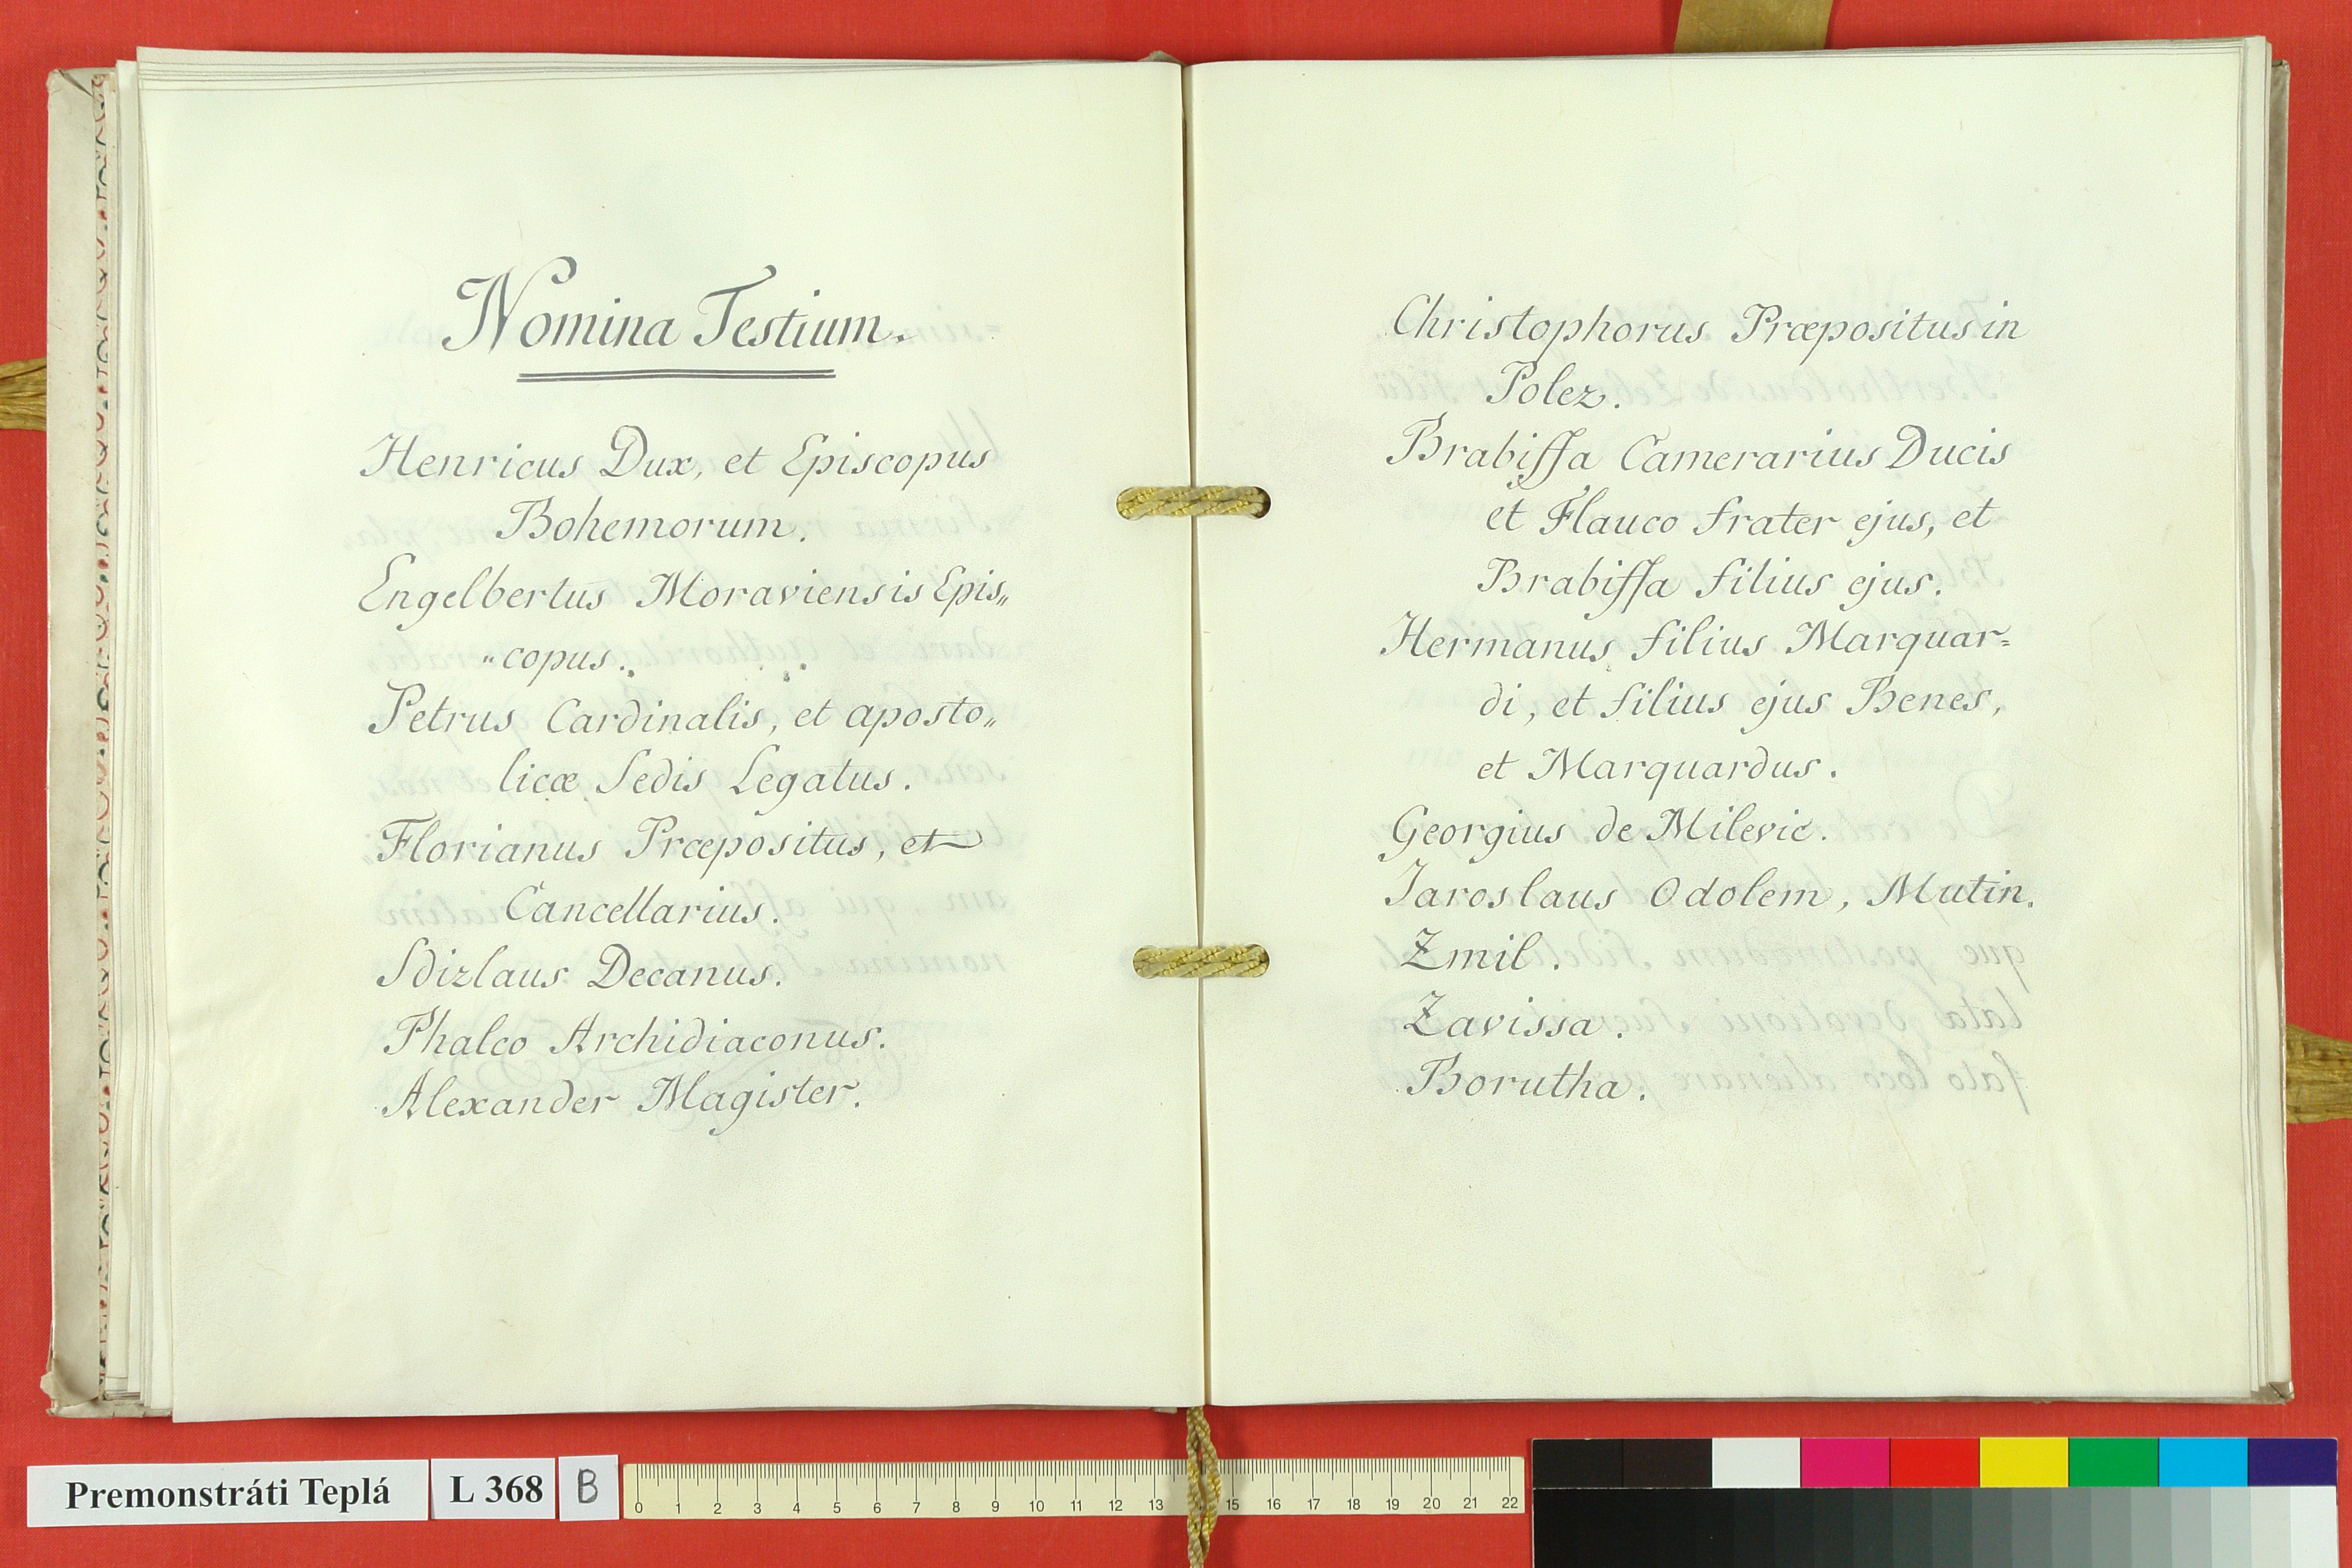 Nomina Testium.
Henricus Dux, et Episcopus
Bohemorum.
Engelbertus Moraviensis Epis„
„copus.
Petrus Cardinalis, et aposto„
licæ Sedis Legatus.
Florianus Præpositus, et
Cancellarius.
Sdizlaus Decanus.
Phalco Archidiaconus.
Alexander Magister.
Christophorus Præpositus in
Polez.
Brabiſſa Camerarius Ducis
et Flauco frater ejus, et
Brabiſſa filius ejus.
Hermanus filius Marquar=
di, et filius ejus Benes,
et Marquardus.
Georgius de Milevic.
Jaroslaus Odolem, Mutin.
Zmil.
Zavissa.
Borutha.
Premonstráti Teplá L 368 B
0 1 2 3 4 5 6 7 8 9 10 11 12 13 15 16 17 18 19 20 21 22